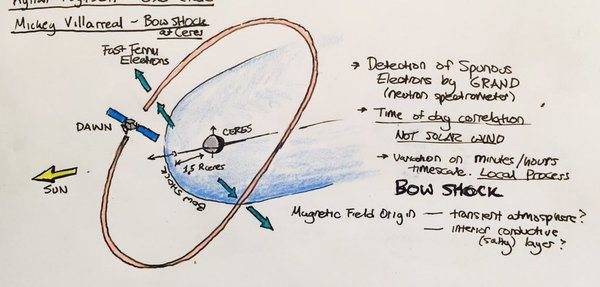 Mickey Villarreal - BOW SHOCK
at Ceres
Fast Fermi
Electrons
DAWN
CERES
1,5 Rceres
BOW SHOCK
SUN
→ Detection of Spurious
Electrons by GRAND
(neutron spectrometer)
→ Time of day correlation
NOT SOLAR WIND
→ Variation on minutes/hours
timescale. Local Process
BOW SHOCK
Magnetic Field Origin — transient atmosphere?
— interior conductive
(salty) layer?